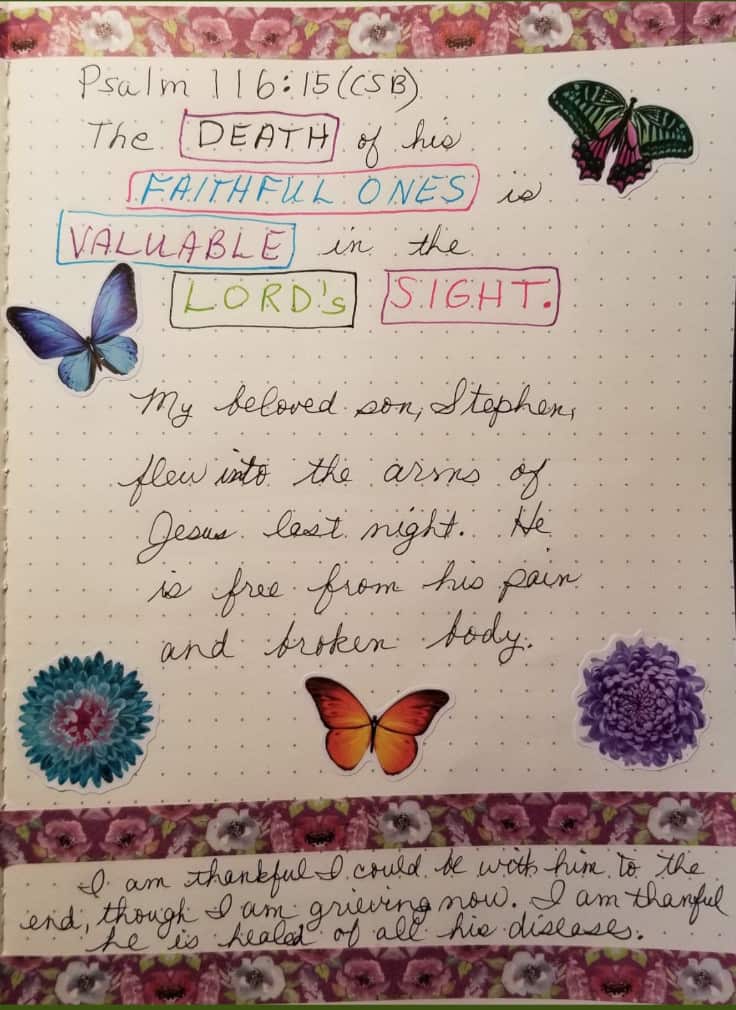 Psalm 116:15 (CSB)
The DEATH of his
FAITHFUL ONES is
VALUABLE in the
LORD's SIGHT.
My beloved son, Stephen,
flew into the arms of
Jesus last night. He
is free from his pain
and broken body.
I am thankful I could be with him to the
end, though I am grieving now. I am thanful
he is healed of all his diseases.